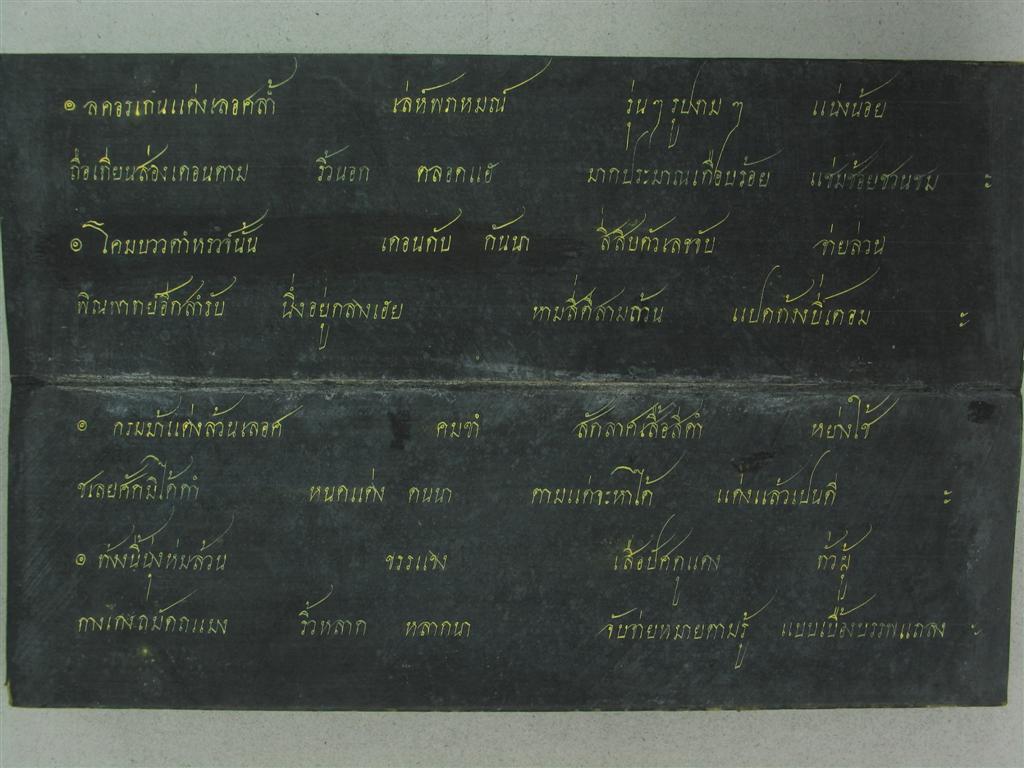 ๏ ลคอรเก่นแต่งเลอศล้ำ เล่ห์พราหมณ์ รุ่นๆ รูปงามๆ แน่งน้อย
ถือเทียนส่องเดอนตาม ริ้วนอก ตลอดแฮ มากประมาณเกือบร้อย แช่มช้อยชวนชม ะ
๏ โคมบววคำหรวจ์นั้น เดอนกับ กันนา สี่สิบคัวเลขจับ จ่ายล่วน
พิณพาทย์อีกสำรับ นึ่งอยู่กลางเฮย หามสี่ตีสามถ้วน แปดท้งงยี่เดอม ะ
๏ กรมม้าแต่งล้วนเลอศ คมขำ สักลาศเสื้อสีดำ หย่างใช้
ชเลยศักมิได้ทำ หนดแต่ง กนนา ตามแต่จะหาได้ แต่งแล้วเปนดี ะ
๏ ท้งงนี้นุ่งห่มล้วน ขรรแขง เสื้อปัศตูแดง ทั่วผู้
กางเกงถมัดถแมง ริ้วหลาก หลากนา จับจ่ายหมายตามรู้ แบบเบื้องบรรพแถลง ะ